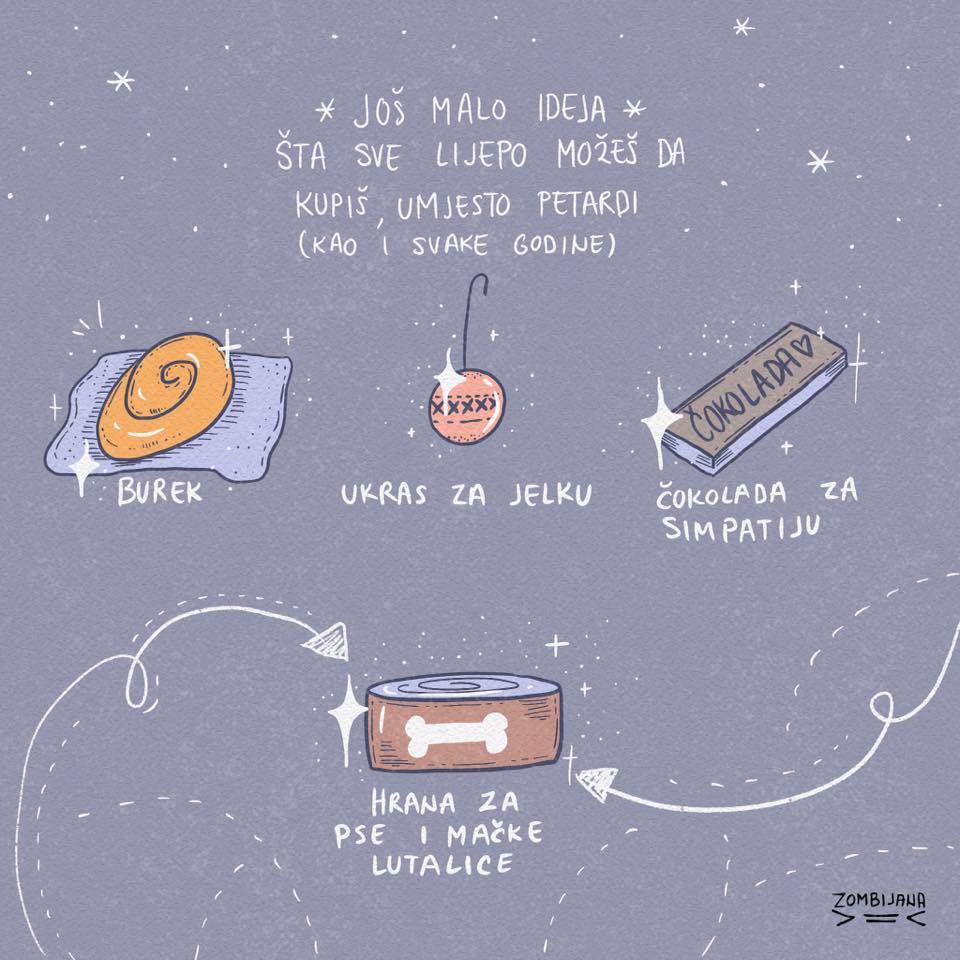 * JOŠ MALO IDEJA *
ŠTA SVE LIJEPO MOŽEŠ DA
KUPIŠ, UMJESTO PETARDI
(KAO I SVAKE GODINE)
BUREK
UKRAS ZA JELKU
ČOKOLADA
ČOKOLADA ZA
SIMPATIJU
HRANA ZA
PSE I MAČKE
LUTALICE
ZOMBIJANA